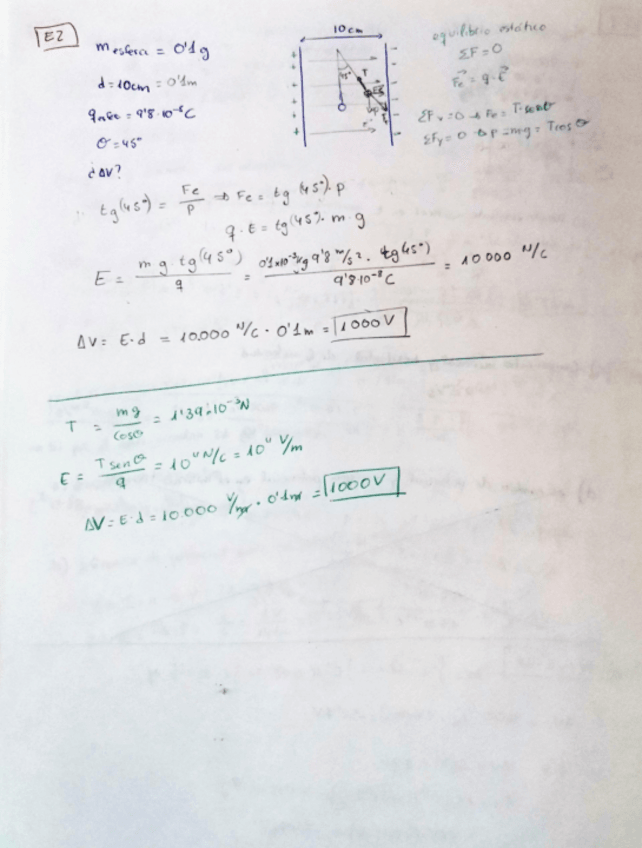 E2
m esfera = 0'1g
d = 10cm = 0'1m
θ = 45°
¿ΔV?
10cm
45°
T
equilibrio estático
ΣF = 0
Fe = q·E
ΣFx = 0 → Fe = T·senθ
ΣFy = 0 → p = mg = Tcosθ
tg(45°) = Fe/p ⇒ Fe = tg(45°)·p
q·E = tg(45°)·m·g
E = m·g·tg(45°)/q = 0'1·10⁻³kg 9'8 m/s²·tg(45°)/9'8·10⁻⁸C = 10000 N/C
ΔV = E·d = 10.000 N/C · 0'1m = 1000V
T = mg/cosθ = 1'39·10⁻³N
E = T senθ/q = 10⁴ N/C = 10⁴ V/m
ΔV = E·d = 10.000 V/m · 0'1m = 1000V